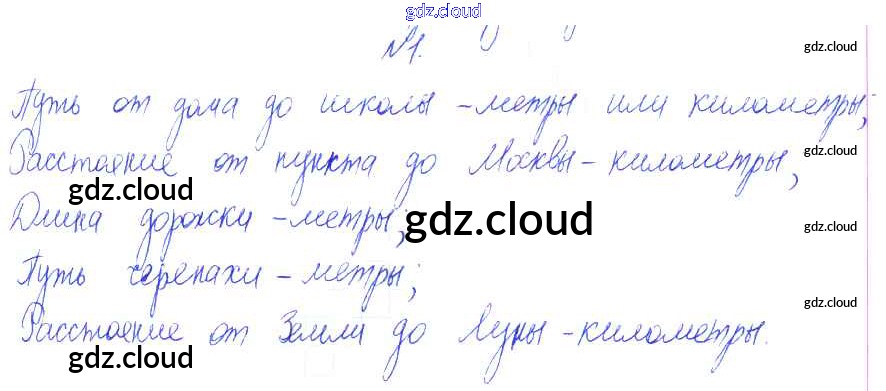 gdz.cloud
№1.
gdz.cloud
Путь от дома до школы - метры или километры;
Расстояние от пункта до Москвы - километры;
gdz.cloud
gdz.cloud
Длина дорожки - метры;
gdz.cloud
gdz.cloud
Путь черепахи - метры;
gdz.cloud
Расстояние от Земли до Луны - километры.
gdz.cloud